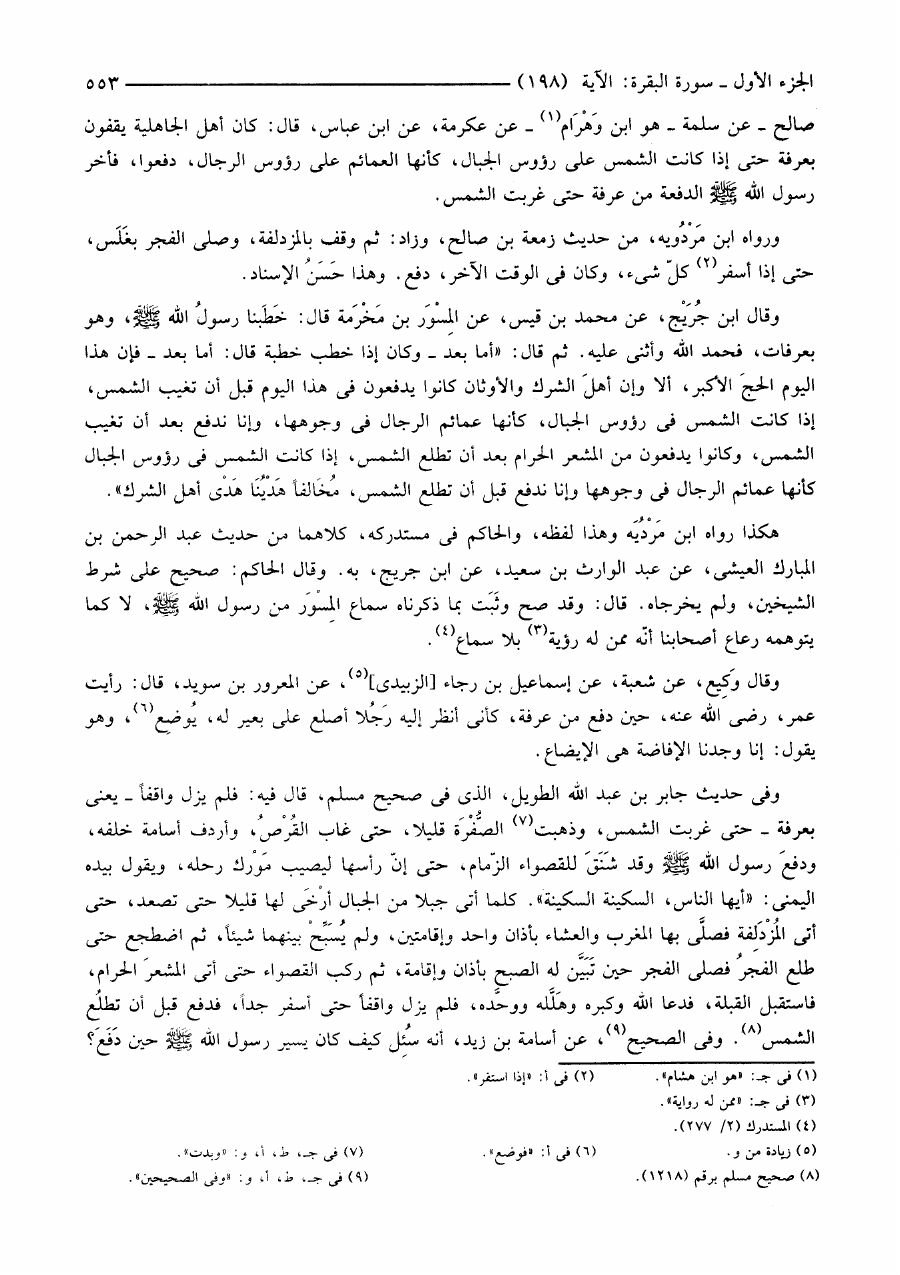 الجزء الأول ـ سورة البقرة: الآية (١٩٨) ــــــ ٥٥٣
صالح ـ عن سلمة ـ هو ابن وَهْرَام(١) ـ عن عكرمة، عن ابن عباس، قال: كان أهل الجاهلية يقفون
بعرفة حتى إذا كانت الشمس على رؤوس الجبال، كأنها العمائم على رؤوس الرجال، دفعوا، فأخر
رسول الله ﷺ الدفعة من عرفة حتى غربت الشمس.
ورواه ابن مَرْدُويه، من حديث زمعة بن صالح، وزاد: ثم وقف بالمزدلفة، وصلى الفجر بغَلَس،
حتى إذا أسفر(٢) كلّ شىء، وكان فى الوقت الآخر، دفع. وهذا حَسَنُ الإسناد.
وقال ابن جُرَيْج، عن محمد بن قيس، عن المِسْوَر بن مَخْرَمة قال: خَطَبنا رسولُ الله ﷺ، وهو
بعرفات، فحمد الله وأثنى عليه. ثم قال: «أما بعد ـ وكان إذا خطب خطبة قال: أما بعد ـ فإن هذا
اليوم الحجّ الأكبر، ألا وإن أهلَ الشرك والأوثان كانوا يدفعون فى هذا اليوم قبل أن تغيب الشمس،
إذا كانت الشمس فى رؤوس الجبال، كأنها عمائم الرجال فى وجوهها، وإنا ندفع بعد أن تغيب
الشمس، وكانوا يدفعون من المشعر الحرام بعد أن تطلع الشمس، إذا كانت الشمس فى رؤوس الجبال
كأنها عمائم الرجال فى وجوهها وإنا ندفع قبل أن تطلع الشمس، مُخَالفاً هَدْيُنَا هَدْى أهل الشرك».
هكذا رواه ابن مَرْدُيَه وهذا لفظه، والحاكم فى مستدركه، كلاهما من حديث عبد الرحمن بن
المبارك العيشى، عن عبد الوارث بن سعيد، عن ابن جريج، به. وقال الحاكم: صحيح على شرط
الشيخين، ولم يخرجاه. قال: وقد صح وثَبَت بما ذكرناه سماع المِسْوَر من رسول الله ﷺ، لا كما
يتوهمه رعاع أصحابنا أنّه ممن له رؤية(٣) بلا سماع(٤).
وقال وَكِيع، عن شعبة، عن إسماعيل بن رجاء [الزبيدى](٥)، عن المعرور بن سويد، قال: رأيت
عمر، رضى الله عنه، حين دفع من عرفة، كأنى أنظر إليه رَجُلا أصلع على بعير له، يُوضع(٦)، وهو
يقول: إنا وجدنا الإفاضة هى الإيضاع.
وفى حديث جابر بن عبد الله الطويل، الذى فى صحيح مسلم، قال فيه: فلم يزل واقفاً ـ يعنى
بعرفة ـ حتى غربت الشمس، وذهبت(٧) الصُّفْرَة قليلا، حتى غاب القُرْصُ، وأردف أسامة خلفه،
ودفعَ رسول الله ﷺ وقد شَنَقَ للقصواء الزّمام، حتى إنّ رأسها ليصيب مَوْرك رحله، ويقول بيده
اليمنى: «أيها الناس، السكينة السكينة». كلما أتى جبلا من الجبال أرْخَى لها قليلا حتى تصعد، حتى
أتى المُزْدَلِفة فصلَّى بها المغرب والعشاء بأذان واحد وإقامتين، ولم يُسَبِّحْ بينهما شيئاً، ثم اضطجع حتى
طلع الفجرُ فصلى الفجر حين تَبَيَّن له الصبح بأذان وإقامة، ثم ركب القصواء حتى أتى المشعرَ الحرام،
فاستقبل القبلة، فدعا الله وكبره وهَلَّله ووحَّده، فلم يزل واقفاً حتى أسفر جداً، فدفع قبل أن تطلُع
الشمس(٨). وفى الصحيح(٩)، عن أسامة بن زيد، أنه سئُل كيف كان يسير رسول الله ﷺ حين دَفَعَ؟
(١) فى جـ: «هو ابن هشام». (٢) فى أ: «إذا استقر».
(٣) فى جـ: «ممن له رواية».
(٤) المستدرك (٢/ ٢٧٧).
(٥) زيادة من و. (٦) فى أ: «فوضع». (٧) فى جـ، ط، أ، و: «وبدت».
(٨) صحيح مسلم برقم (١٢١٨). (٩) فى جـ، ط، أ، و: «وفى الصحيحين».